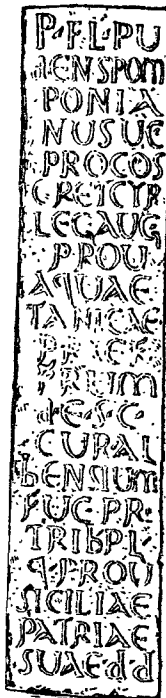 P·FL·PU
dENSPOM
PONIA
NUSUC
PROCOS
CRETCYR
LEGAUG
PROU
AQUAE
TANICAE
PRAEF
FRUM
d·E·S·C
CURAL
bENSIUM
FUC·PR·
TRIbPL·
q·PROU
SICILIAE
PATRIAE
SUAE·d·d